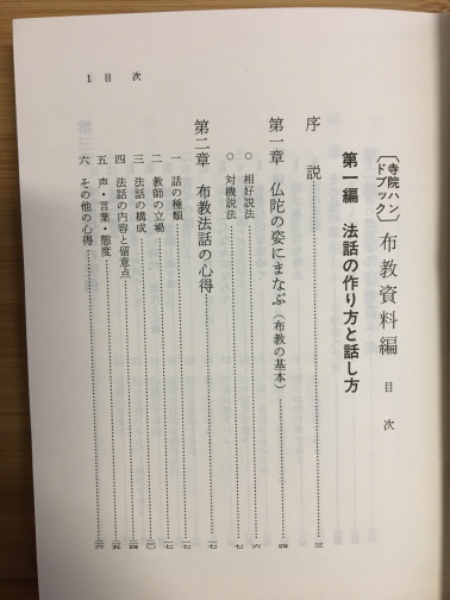 〔寺院ハンドブック〕布教資料編 目次
第一編 法話の作り方と話し方
序説……三
第一章 仏陀の姿にまなぶ（布教の基本）……四
○ 相好説法……六
○ 対機説法……七
第二章 布教法話の心得……一七
一 話の種類……一七
二 教師の立場……一七
三 法話の構成……二〇
四 法話の内容と留意点……二四
五 声・言葉・態度……二五
六 その他の心得……二六
1 目次